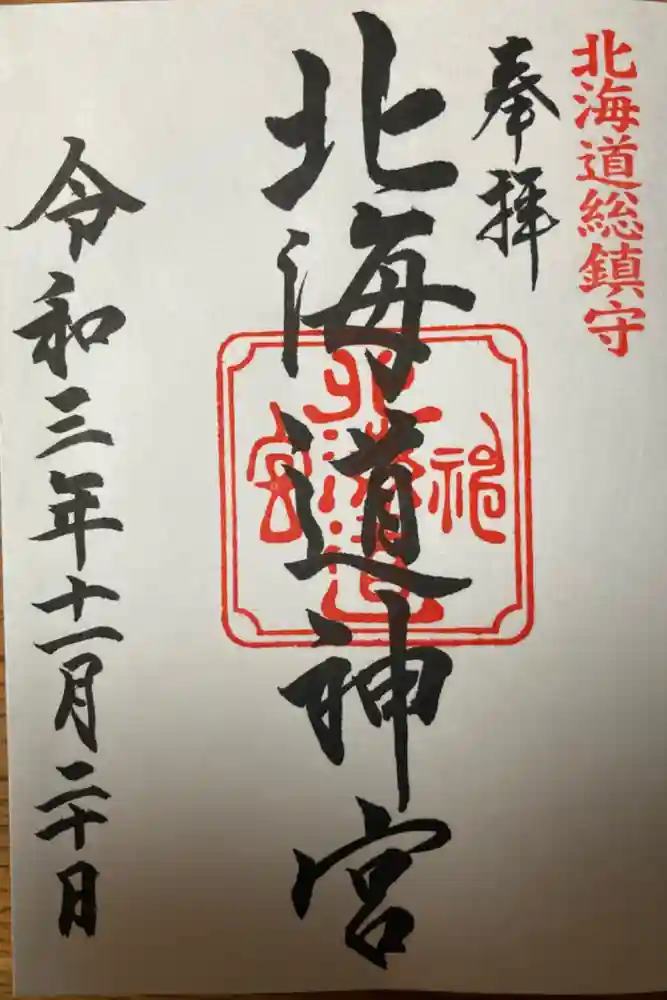 北海道総鎮守
奉拝
北海道神宮
令和三年十一月二十日